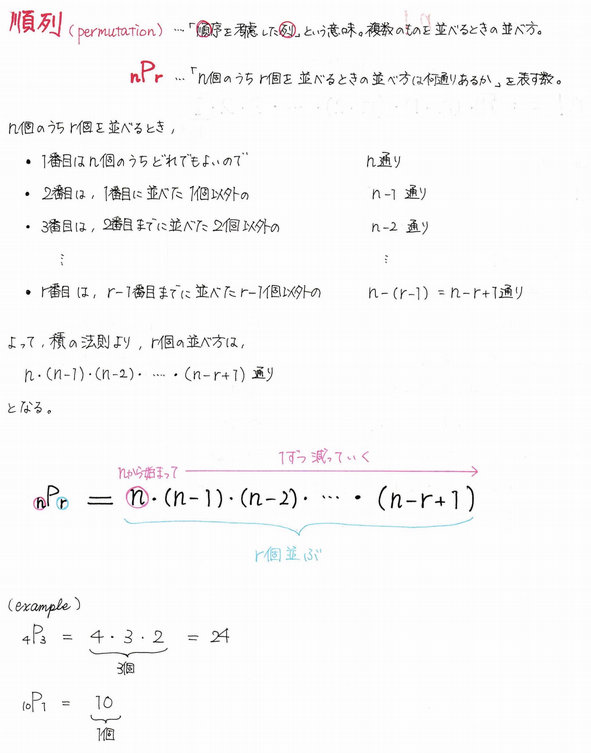 順列(permutation) …「順序を考慮した列」という意味。複数のものを並べるときの並べ方。
nPr …「n個のうちr個を並べるときの並べ方は何通りあるか」を表す数。
n個のうちr個を並べるとき,
• 1番目はn個のうちどれでもよいので n通り
• 2番目は, 1番目に並べた1個以外の n-1 通り
• 3番目は, 2番目までに並べた2個以外の n-2 通り
⋮ ⋮
• r番目は, r-1番目までに並べたr-1個以外の n-(r-1) = n-r+1通り
よって, 積の法則より, r個の並べ方は,
n・(n-1)・(n-2)・ …… ・(n-r+1) 通り
となる。
nから始まって 1ずつ減っていく
nPr = n・(n-1)・(n-2)・ … ・(n-r+1)
r個並ぶ
(example)
4P3 = 4・3・2 = 24
3個
10P1 = 10
1個